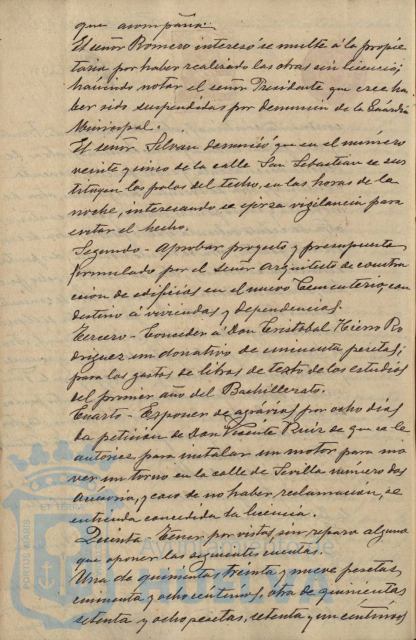 que acompaña.
El señor Romero interesó se multe á la propie-
taria por haber realizado las obras sin licencia;
haciendo notar el señor Presidente que cree ha-
ber sido suspendidas por denuncia de la Guardia
Municipal.
El señor Silvan denunció que en el número
veinte y cinco de la calle San Sebastian se sus-
tituyen los palos del techo, en las horas de la
noche, interesando se ejerza vigilancia para
evitar el hecho.
Segundo - Aprobar proyecto y presupuesto
formulado por el señor Arquitecto de construc-
cion de edificios en el nuevo Cementerio, con
destino á viviendas y dependencias.
Tercero - Conceder á Don Cristobal Hierro Ro-
driguez un donativo de cincuenta pesetas,
para los gastos de libros de texto de los estudios
del primer año del Bachillerato.
Cuarto - Exponer de agravios por ocho dias
la petición de Don Vicente Ruiz de que se le
autorice para instalar un motor para mo-
ver un torno en la calle de Sevilla número dos
y caso de no haber reclamación, se
entienda concedida la licencia.
Quinto - Tener por vistas, sin reparo alguno
que oponer las siguientes cuentas.
Una de quinientas treinta y nueve pesetas,
cincuenta y ocho centimos, otra de quinientas
setenta y ocho pesetas, setenta y un centimos
PORTUS MARIS ET TERRAE